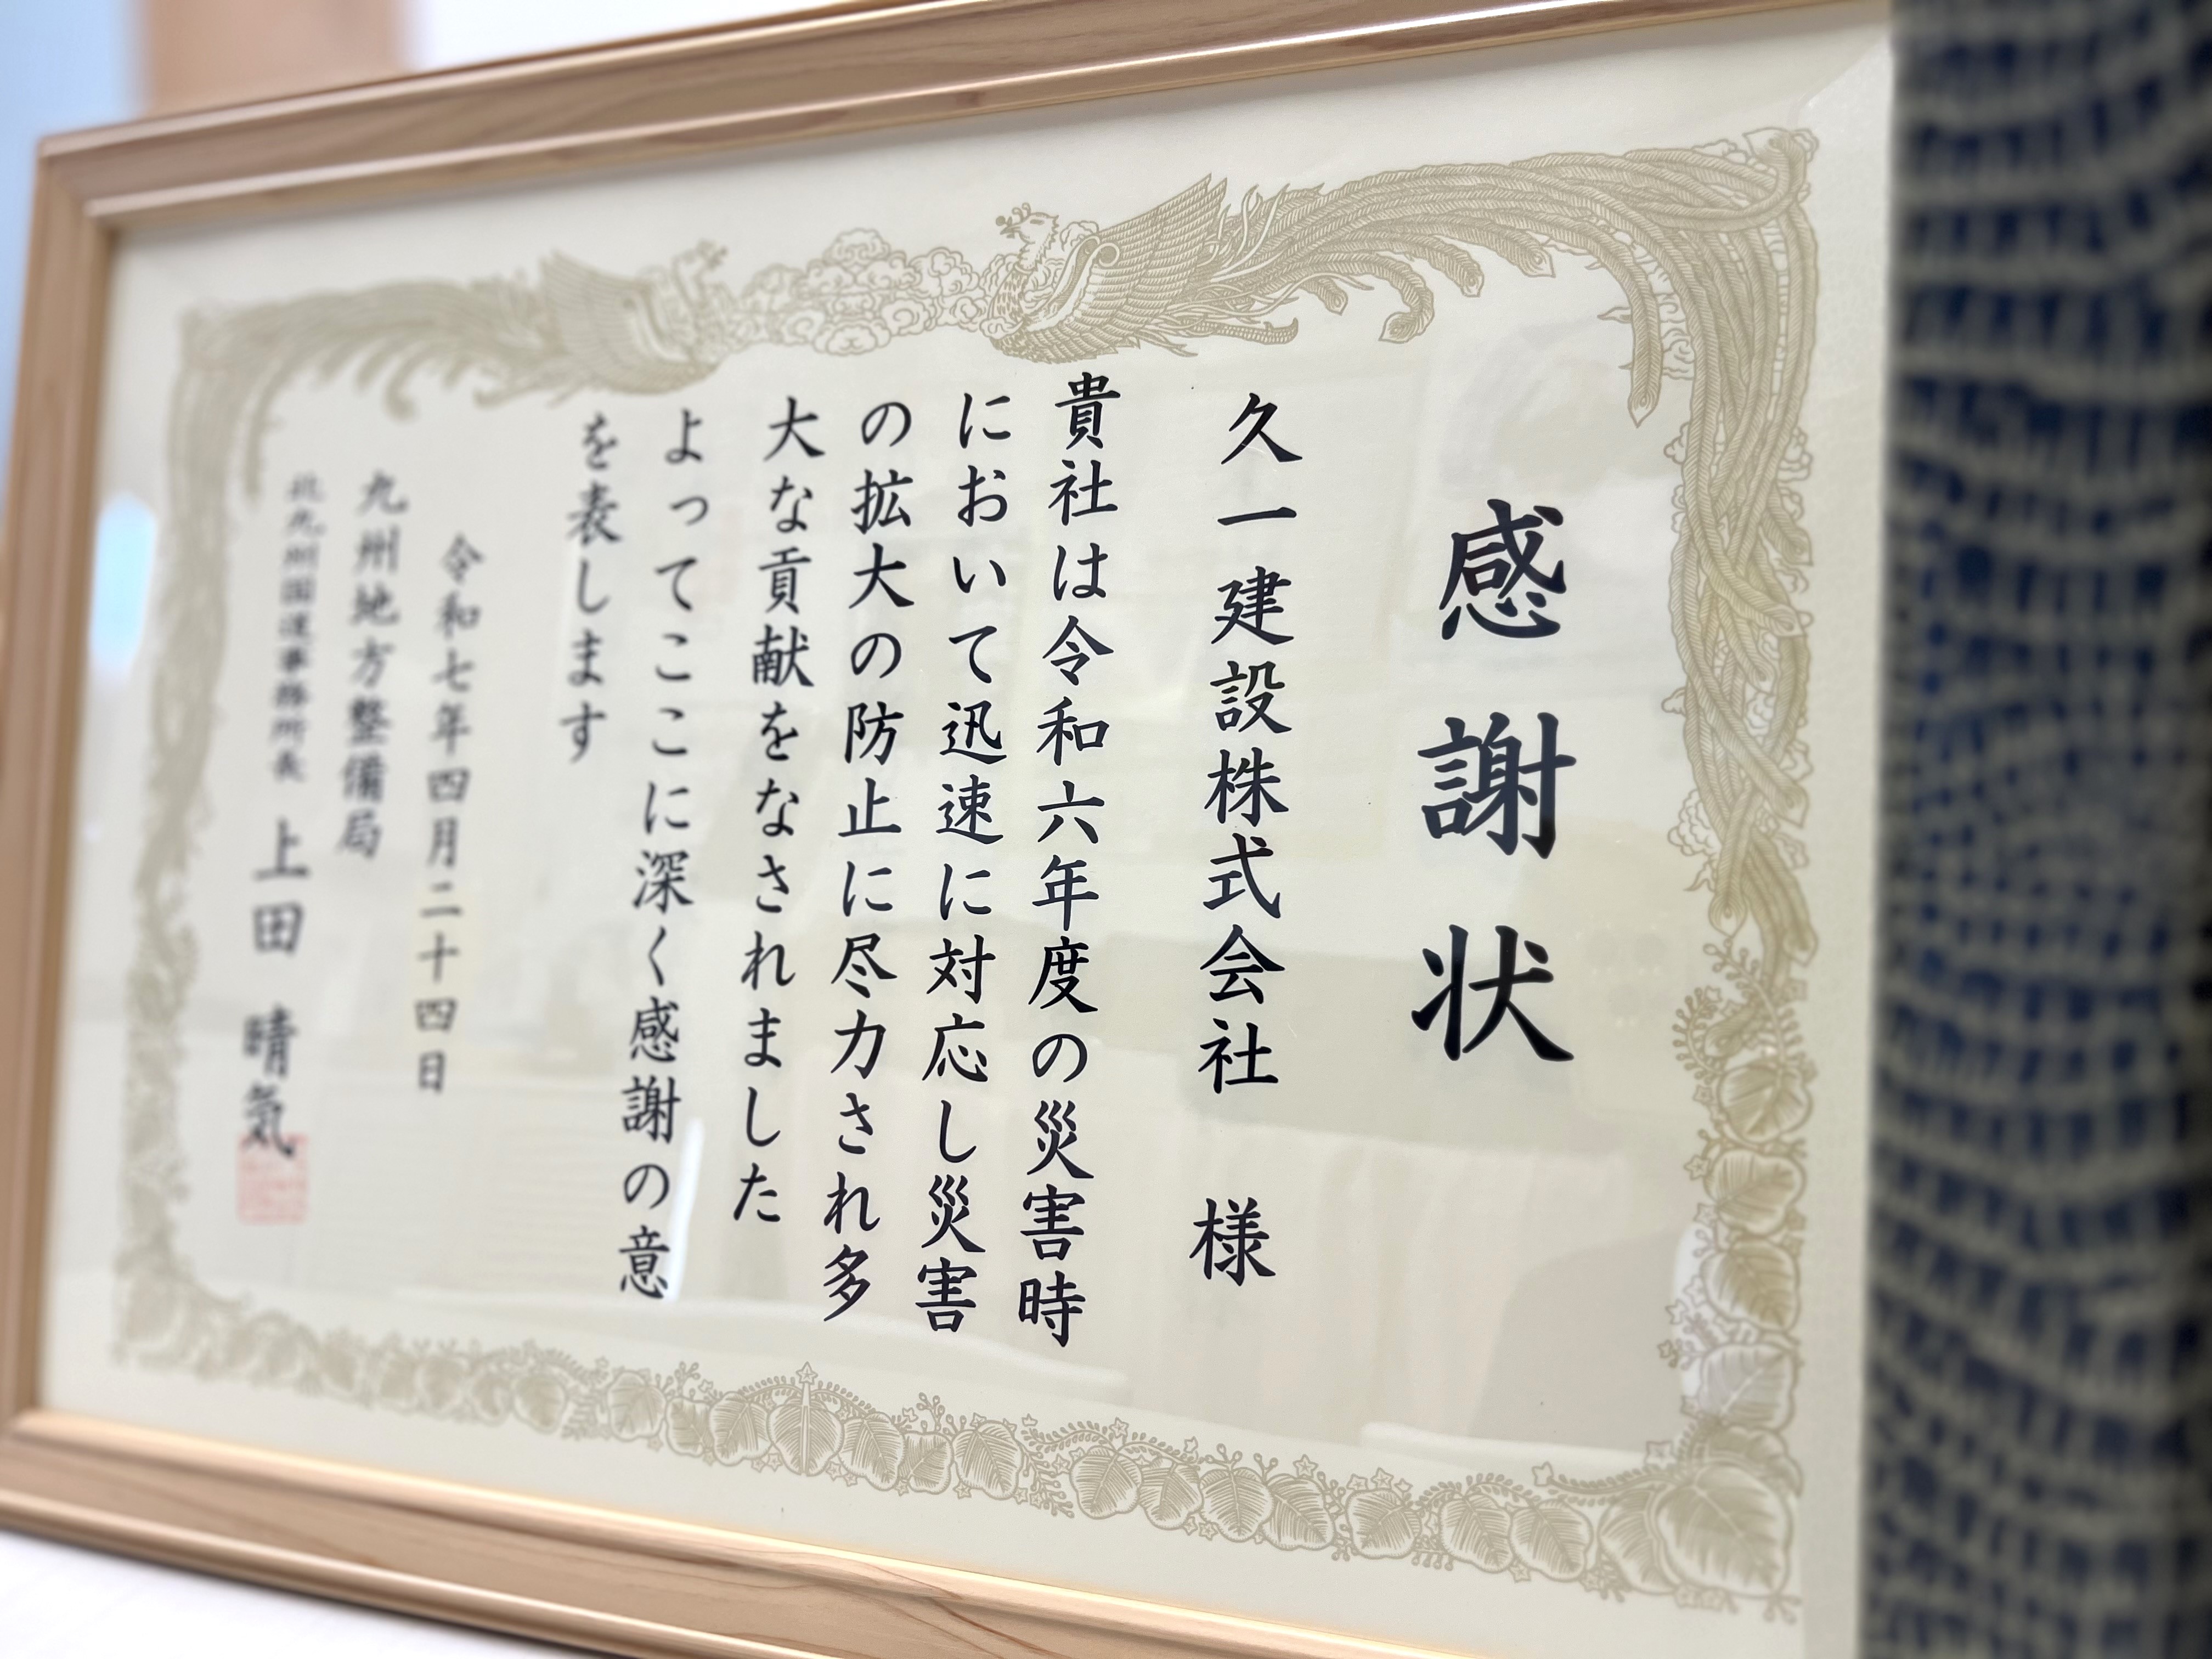 感謝状
久一建設株式会社 様
貴社は令和六年度の災害時
において迅速に対応し災害
の拡大の防止に尽力され多
大な貢献をなされました
よってここに深く感謝の意
を表します
令和七年四月二十四日
九州地方整備局
北九州国道事務所長 上田 晴気